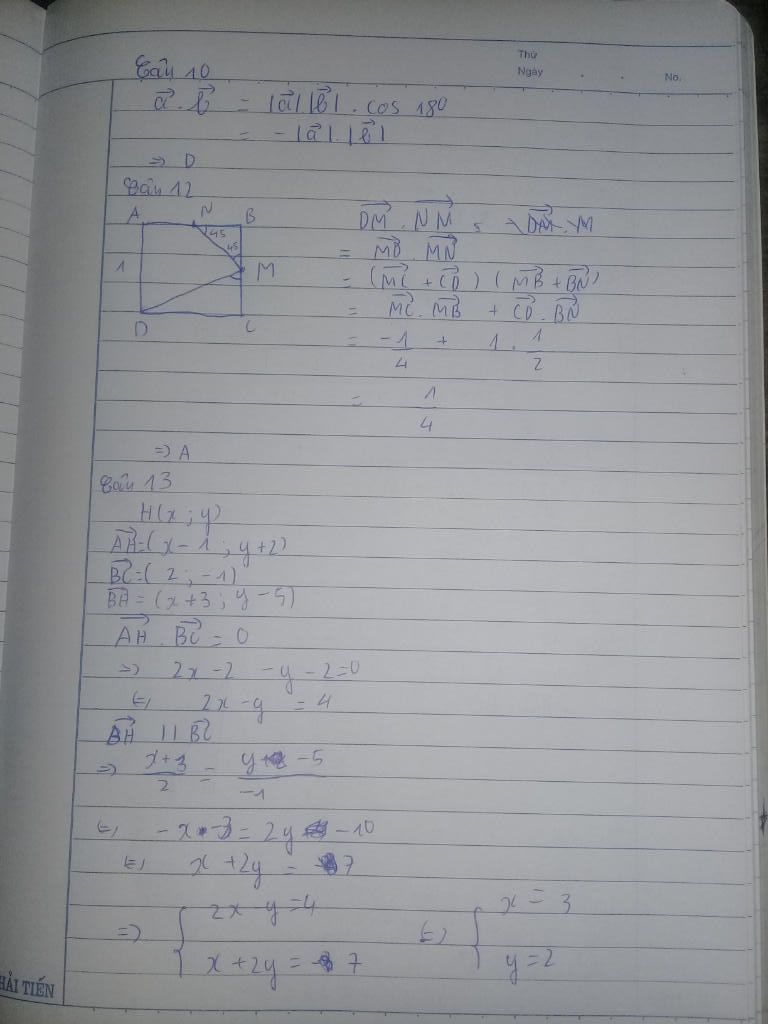 Thứ
Ngày . . No.
Câu 10
a⃗ . b⃗ = |a⃗| |b⃗| . cos 180
= - |a⃗| . |b⃗|
=> D
Câu 12
A N B
45
45
1 M
D C
DM⃗ . NM⃗
= MD⃗ . MN⃗
= (MC⃗ + CD⃗) (MB⃗ + BN⃗)
= MC⃗ . MB⃗ + CD⃗ . BN⃗
= -1/4 + 1 . 1/2
= 1/4
=> A
Câu 13
H(x ; y)
AH⃗ = (x - 1 ; y + 2)
BC⃗ = (2 ; -1)
BH⃗ = (x + 3 ; y - 5)
AH⃗ . BC⃗ = 0
=> 2x - 2 - y - 2 = 0
<=> 2x - y = 4
BH⃗ || BC⃗
=> (x + 3)/2 = (y - 5)/-1
<=> -x - 3 = 2y - 10
<=> x + 2y = 7
=> { 2x - y = 4 <=> { x = 3
x + 2y = 7 y = 2
HẢI TIẾN